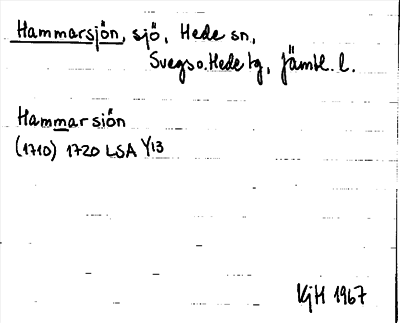 Hammarsjön, sjö, Hede sn,
Svegs o. Hede tg, Jämtl. l.
Hammarsiön
(1710) 1720 LSA Y13
KjH 1967